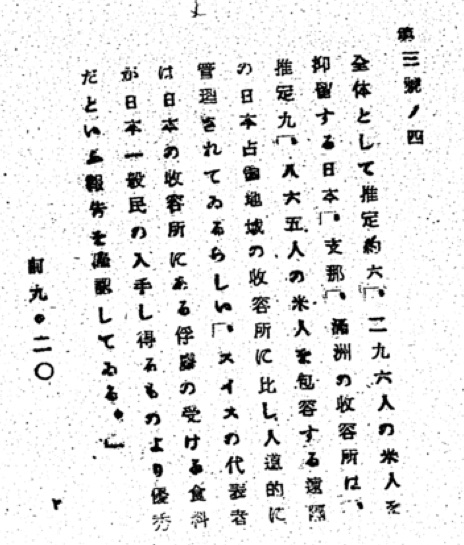 第三號ノ四
全体として推定約六、二九六人の米人を
抑留する日本、支那、滿洲の收容所は、
推定九、八六五人の米人を包容する遠隔
の日本占領地域の收容所に比し人道的に
管理されてゐるらしい、スイスの代表者
は日本の收容所にある俘虜の受ける食料
が日本一般民の入手し得るものより優秀
だといふ報告を確認してゐる。」
前九・二〇